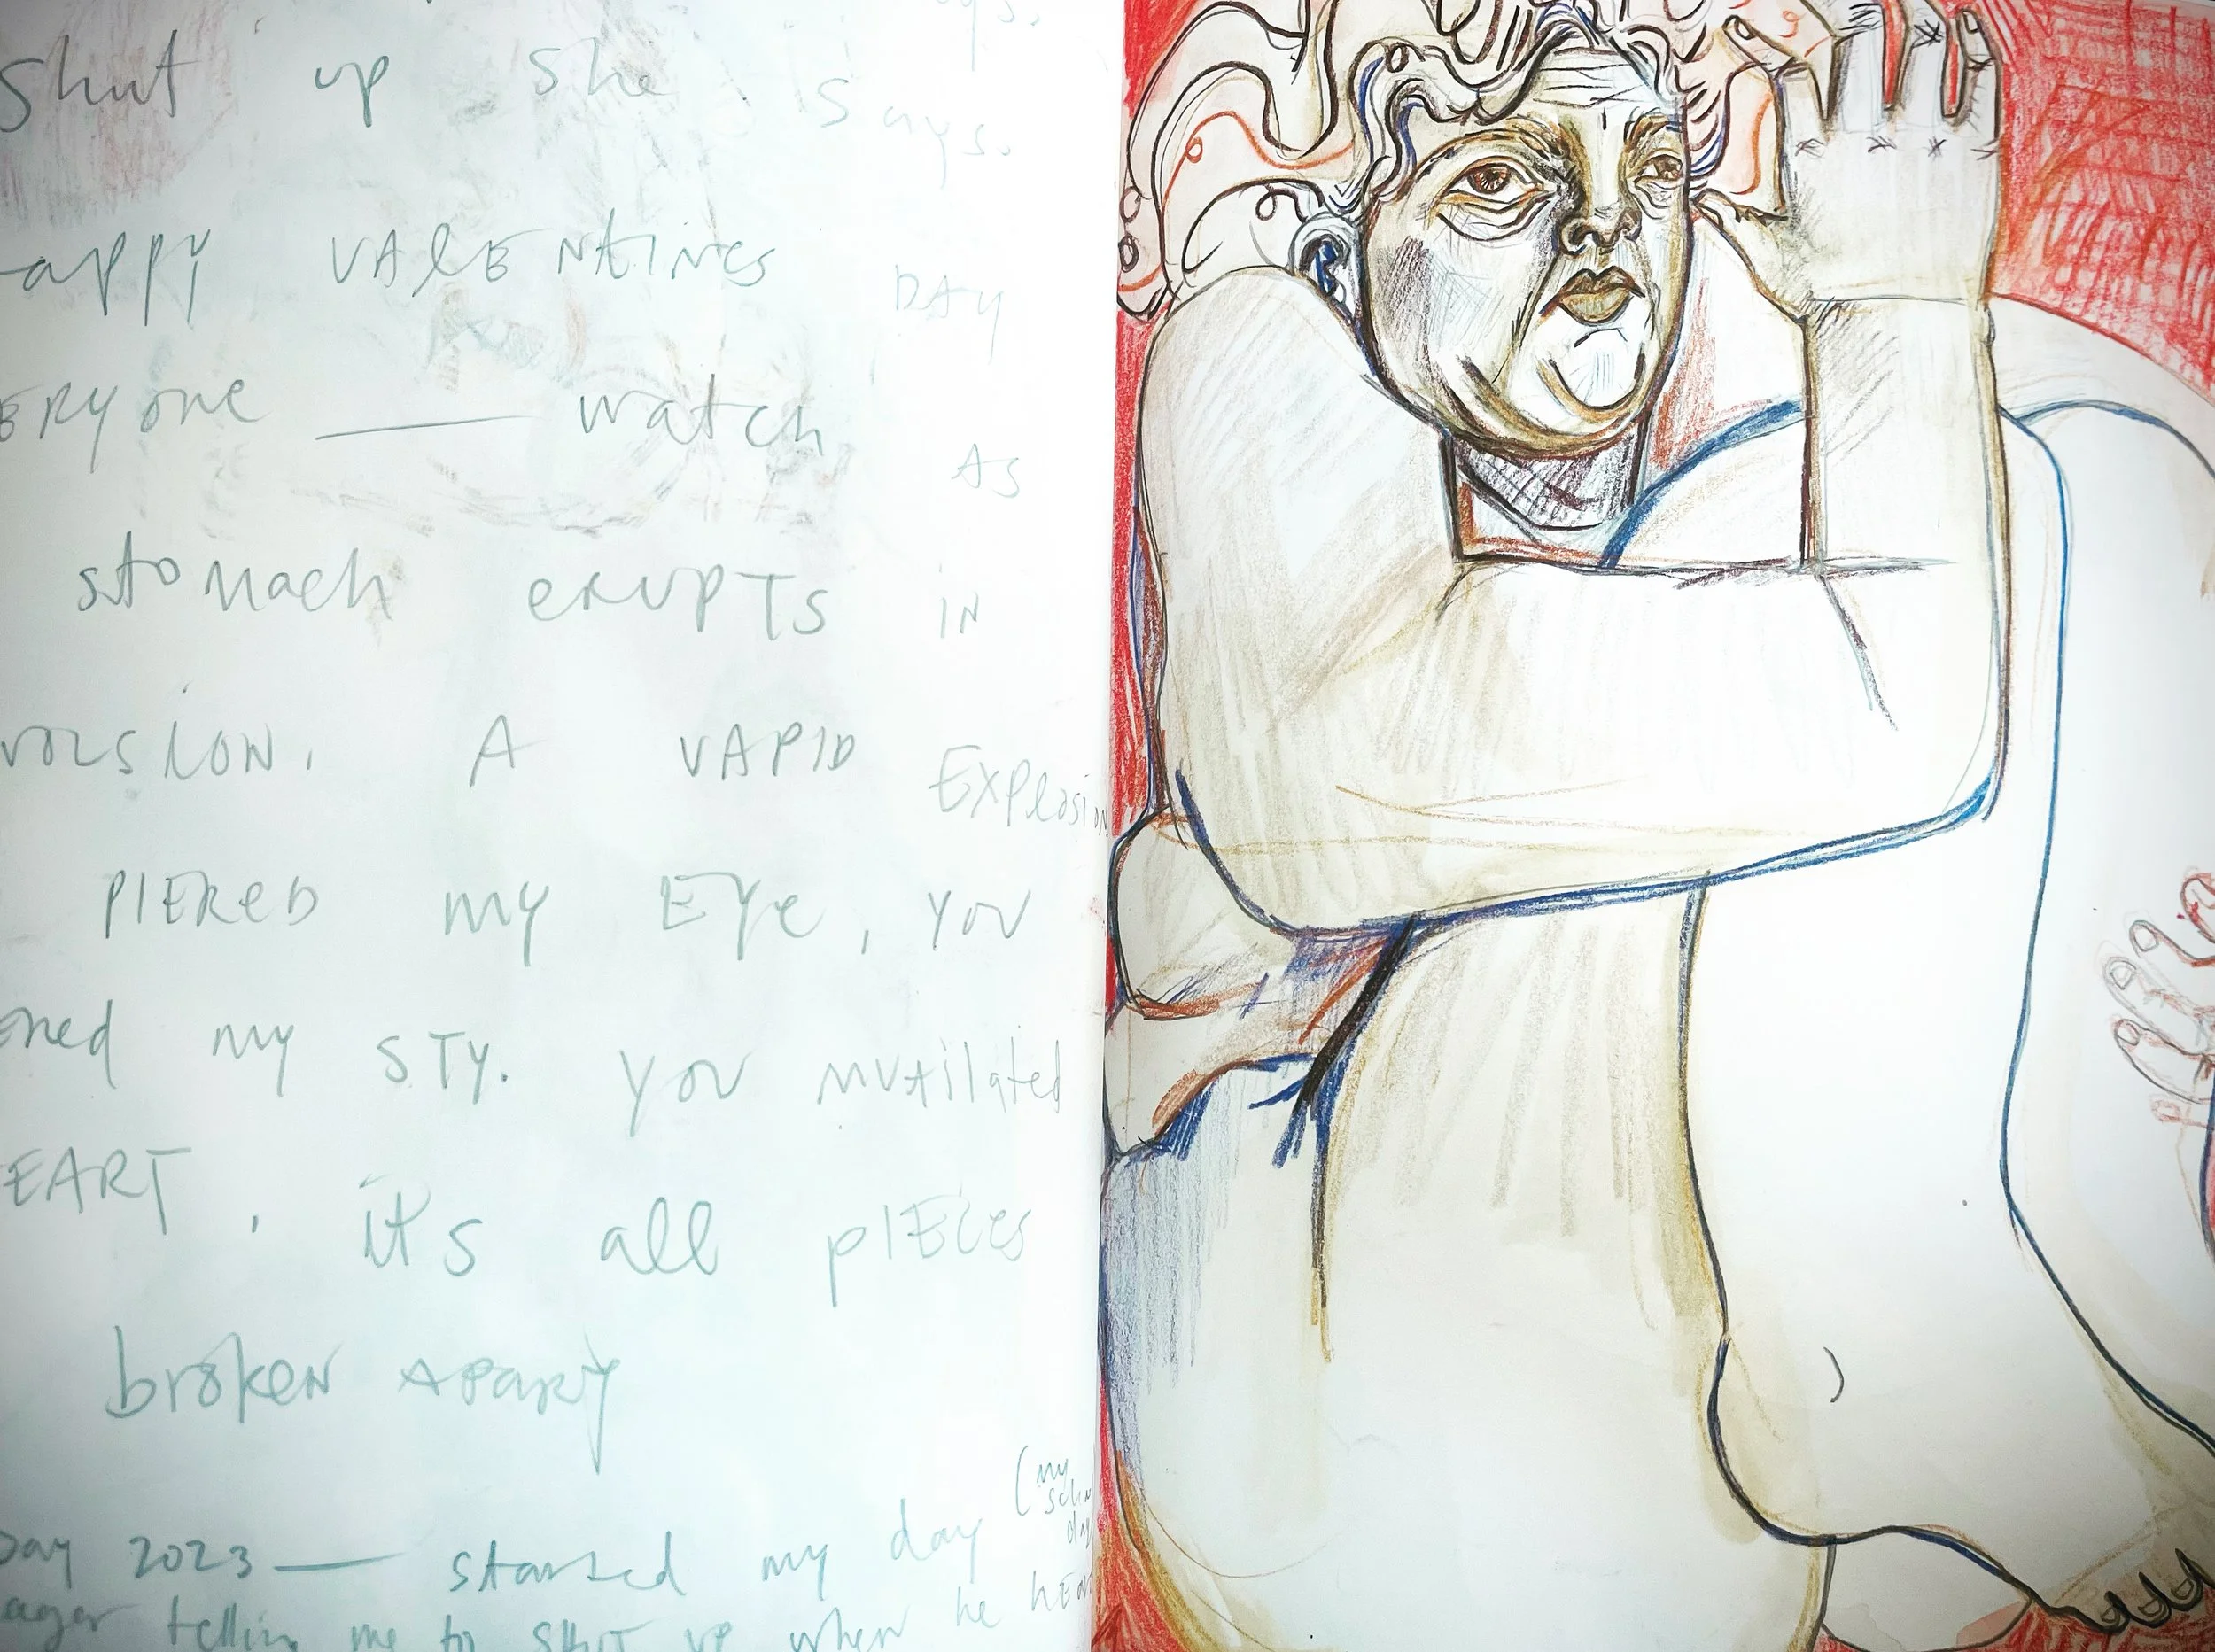 shut up she says.
appy VALENtINes DAY
ERYone — watch AS
stomach erupts IN
volsion. A VAPID Explosion
PIERED my Eye, you
ned my STY. you mutailated
EART, it's all pIEces
broken apart
Day 2023 — started my day (my
day
ager telling me to shut up when he